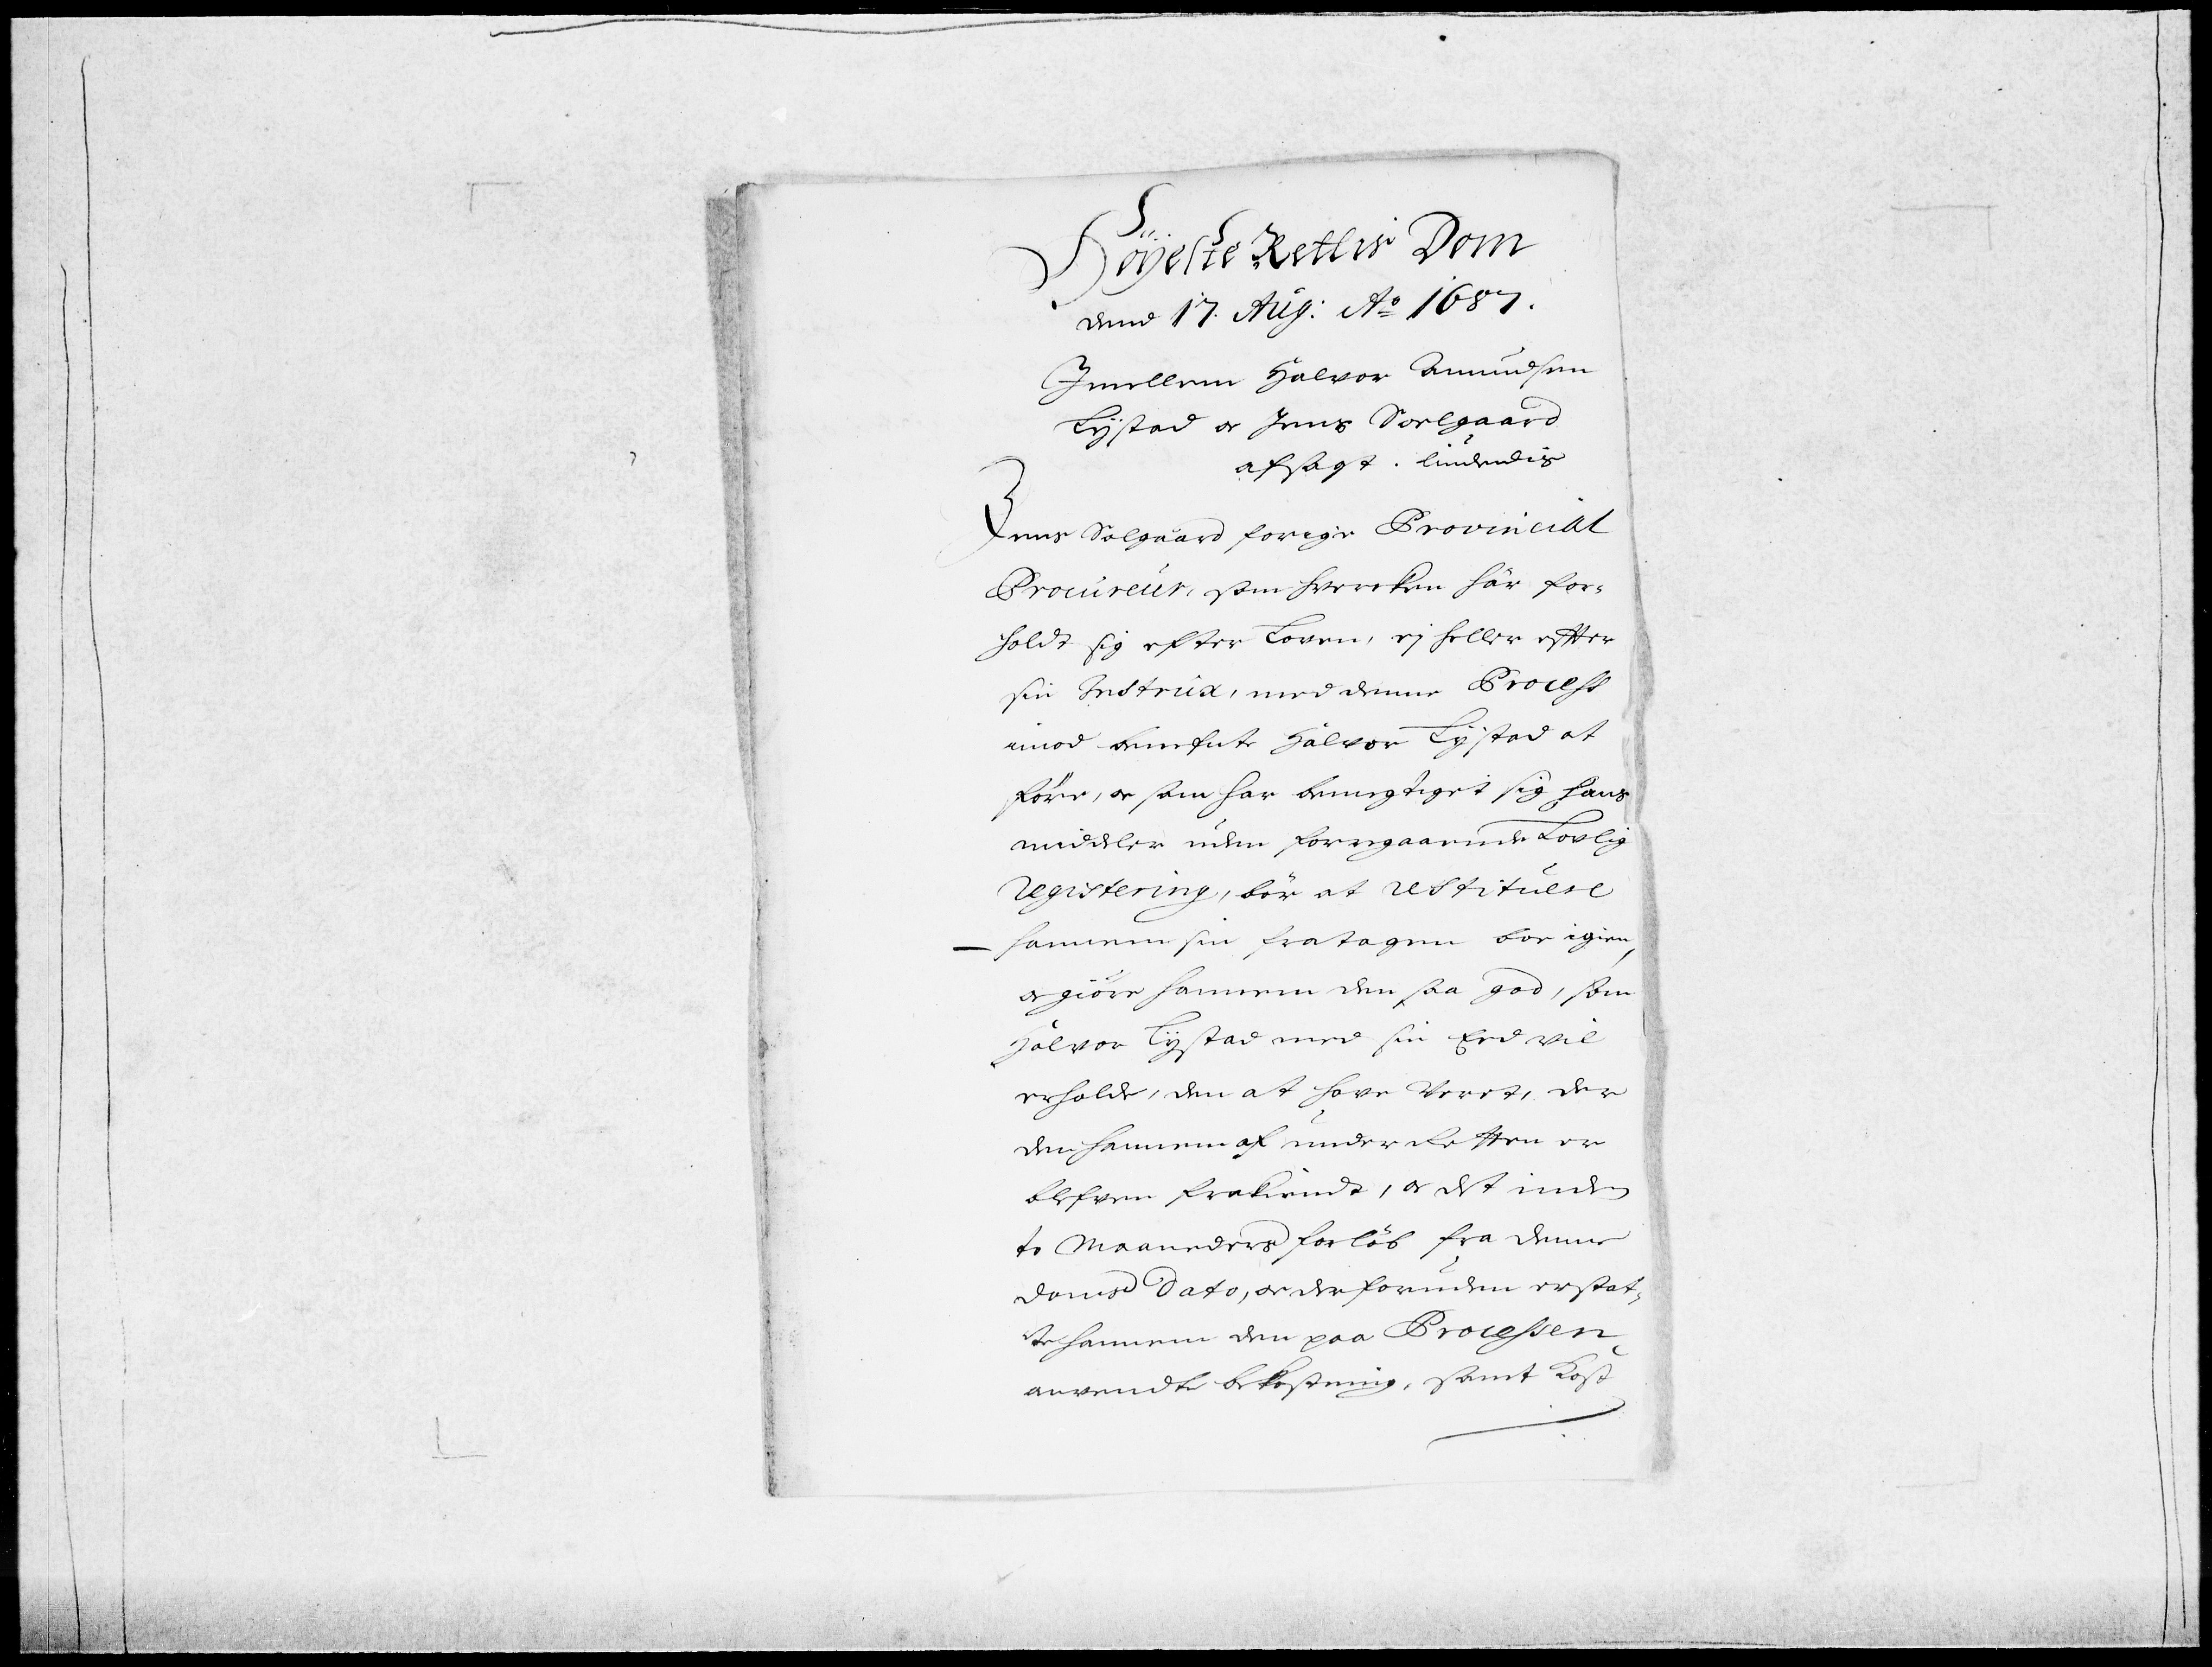 Höÿeste Rettis Dom
dend 17. Aug: Ao 1687.
Imellem Halvor Amundsen
Lÿstad oc Jens Soelgaard
afsagt. liudendis
Jens Solgaard forige Provincial
Procureur, som hvercken har for-
holdt sig efter Loven, ej heller effter
sin Instrux, med denne Process
imod bemeste Halvor Lÿstad at
före, oc som har bemegtiget sig hans
middeler uden foregaaende Lovlig
Registering, bör at restituere
hannem sin fratagen boe igien,
oc giöre hannem den saa god, som
Halvor Lÿstad med sin Eed vil
erholde, den at have veret, der
den hannem af underRetten er
blefven frakiendt, oc det inden
to Maaneders forlöb fra denne
doms Dato, oc derforuden erstat-
te hannem den paa Processen
anvendte bekostning, samt Kost